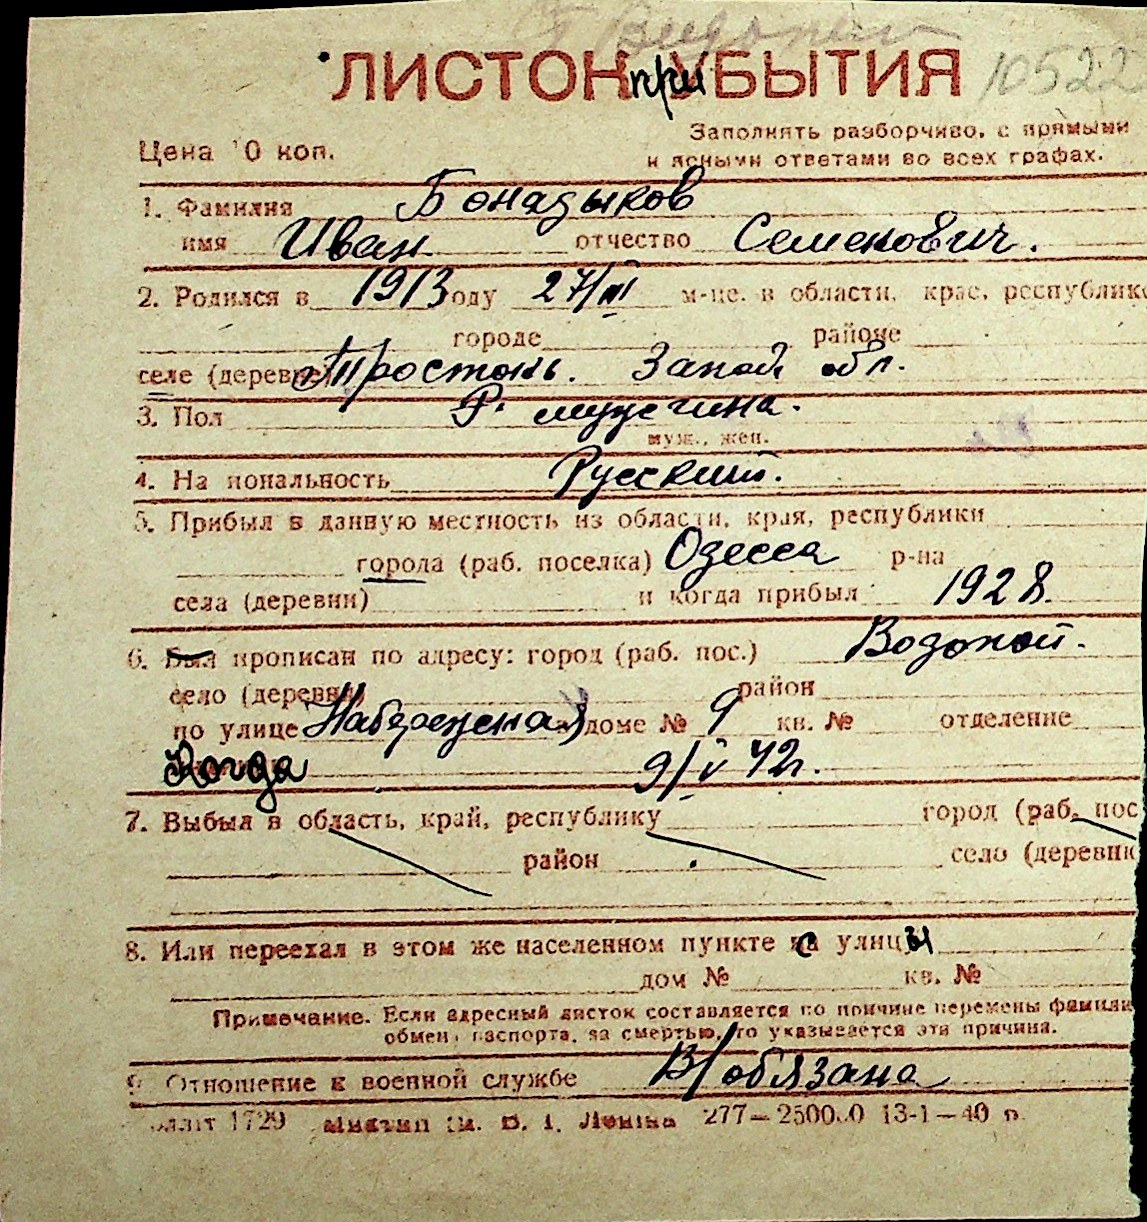 10522
ЛИСТОК приБЫТИЯ
Цена 0 коп.
Заполнять разборчиво, с прямыми
и ясными ответами во всех графах.
1. Фамилия Бонадыков
имя Иван отчество Семенович.
2. Родился в 1913 оду 27/III м-це. в области, крае, республике
городе районе
селе (деревне) Тростань. Запой обл.
3. Пол Р. мущина.
муж., жен.
4. На иональность Русский.
5. Прибыл в данную местность из области, края, республики
города (раб. поселка) Одесса р-на
села (деревни) и когда прибыл 1928.
6. Был прописан по адресу: город (раб. пос.) Водопой.
село (деревня) район
по улице Набережная доме № 9 кв. № отделение
Когда 9/V 42г.
7. Выбыл в область, край, республику город (раб. пос
район село (деревня
8. Или переехал в этом же населенном пункте с улицы
дом № кв. №
Примечание. Если адресный листок составляется по причине перемены фамили
обмен паспорта, за смертью, то указывается эта причина.
9. Отношение к военной службе В/обязана
1729 Ленина 277—250000 13-1—40 г.